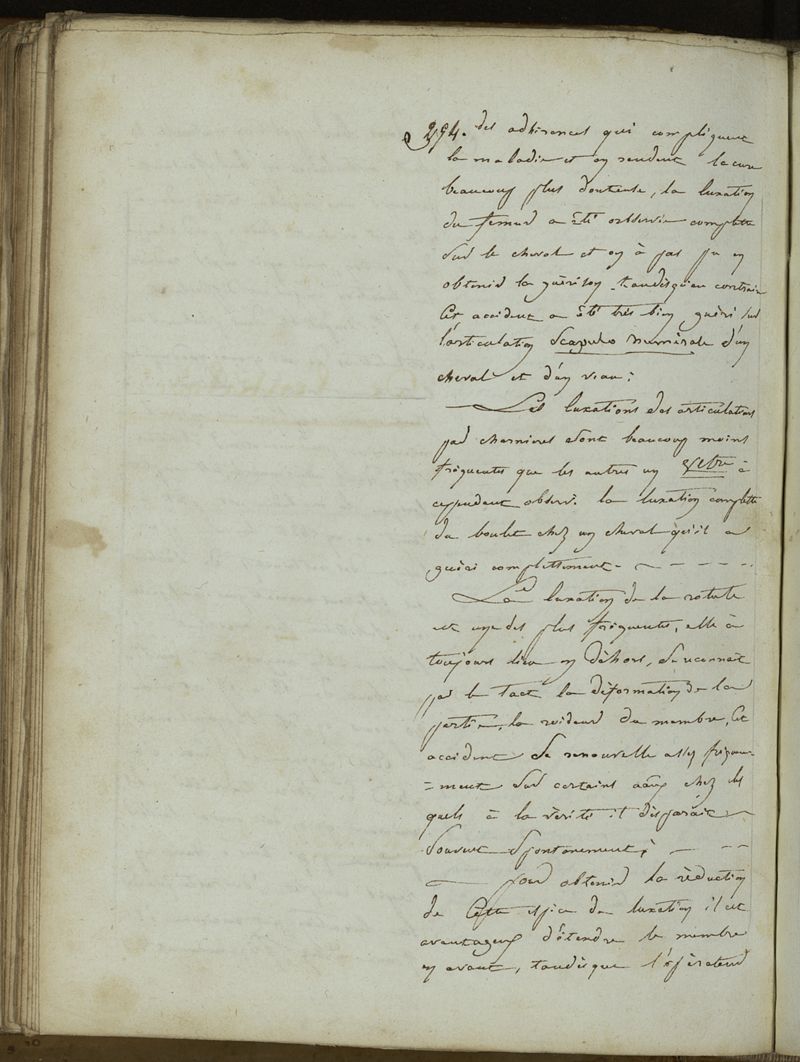 294. des adhérences qui compliquent
la maladie et en rendent la cure
beaucoup plus douteuse, la luxation
du femur a été observée complette
sur le cheval et on à pas pu en
obtenir la guérison tandisqu'au contraire
Cet accident a été très bien guéri sur
l'articulation Scapulo humérale d'un
cheval et d'un veau ;
Les luxations des articulations
par charnieres sont beaucoup moins
fréquentes que les autres un à
cependant observé la luxation complette
du boulet chez un cheval qu'il a
guéri complettement -
La luxation de la rotule
est une des plus fréquentes, elle à
toujours lieu en déhors, se reconnait
par le tact la déformation de la
partie, la roideur du membre, Cet
accident se renouvelle assez fréquem=
=ment sur certains chez les
quels à la vérité il disparait
souvent spontanement ;
pour obtenir la réduction
de Cette espèce de luxation il est
avantageux d'étendre le membre
en avant, tandisque l'opérateur